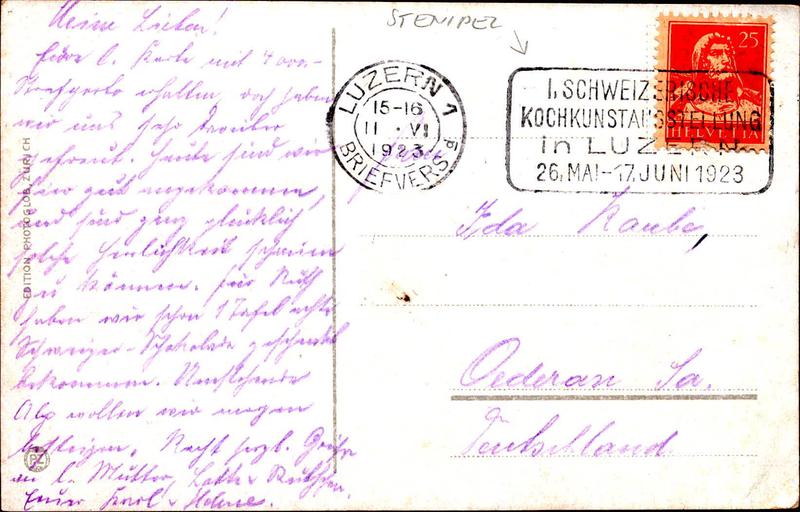 Meine Lieben!
Eure l. Karte mit 4000-
Strafporto erhalten, doch haben
wir uns sehr darüber
gefreut. Heute sind wir
hier gut angekommen,
und sind ganz glücklich
solche Herrlichkeit schauen
zu können. Für Ruth
haben wir schon 1 Tafel echte
Schweizer-Schokolade geschenkt
bekommen. Umstehende
Alp wollen wir morgen
besteigen. Recht herzl. Grüße
an l. Mutter, Lotte & Ruthchen.
Euer Karl & Helene.
EDITION PHOTOGLOB, ZÜRICH
PZ
STEMPEL
LUZERN 1
15-16
11. VI
1923
BRIEFVERS.
I. SCHWEIZERISCHE
KOCHKUNSTAUSSTELLUNG
in LUZERN
26. MAI-17. JUNI 1923
25
HELVETIA
Frau
Ida Raube,
Oederan Sa.
Deutschland